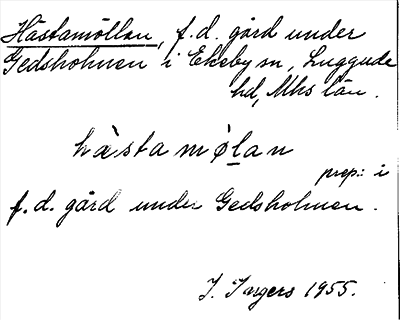 Hästamöllan, f.d. gård under
Gedsholmen i Ekeby sn, Luggude
hd, Mhs län.
hàsta møl̲an
prep.: i
f.d. gård under Gedsholmen.
J. Ingers 1955.